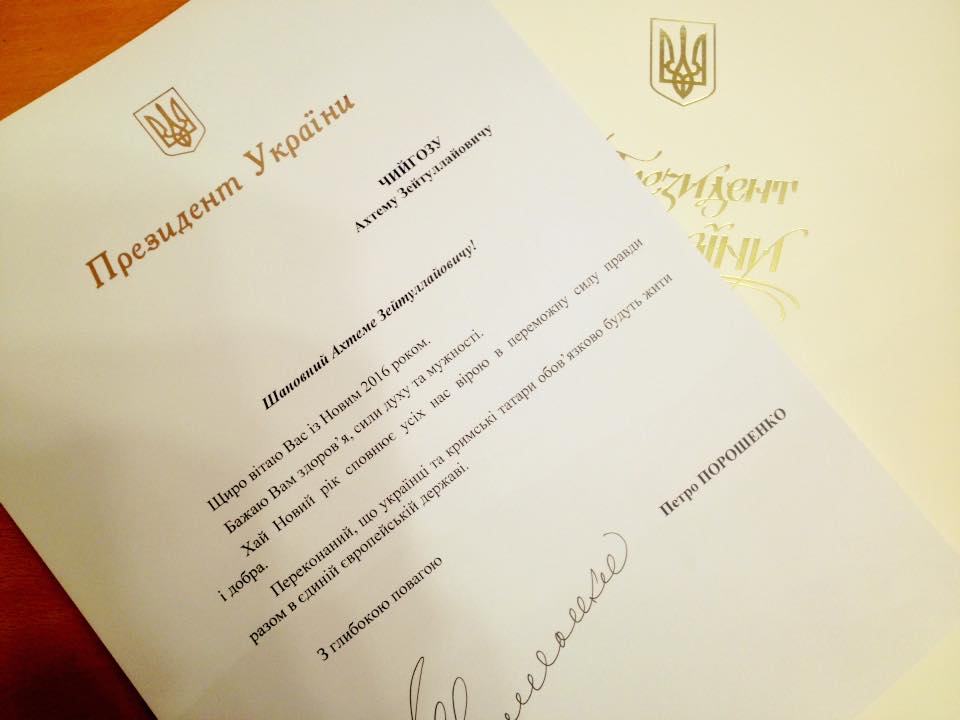 Президент України
ЧИЙГОЗУ
Ахтему Зейтуллайовичу
Шановний Ахтеме Зейтуллайовичу!
Щиро вітаю Вас із Новим 2016 роком.
Бажаю Вам здоров’я, сили духу та мужності.
Хай Новий рік сповнює усіх нас вірою в переможну силу правди
і добра.
Переконаний, що українці та кримські татари обов’язково будуть жити
разом в єдиній європейській державі.
З глибокою повагою
Петро ПОРОШЕНКО
Президент